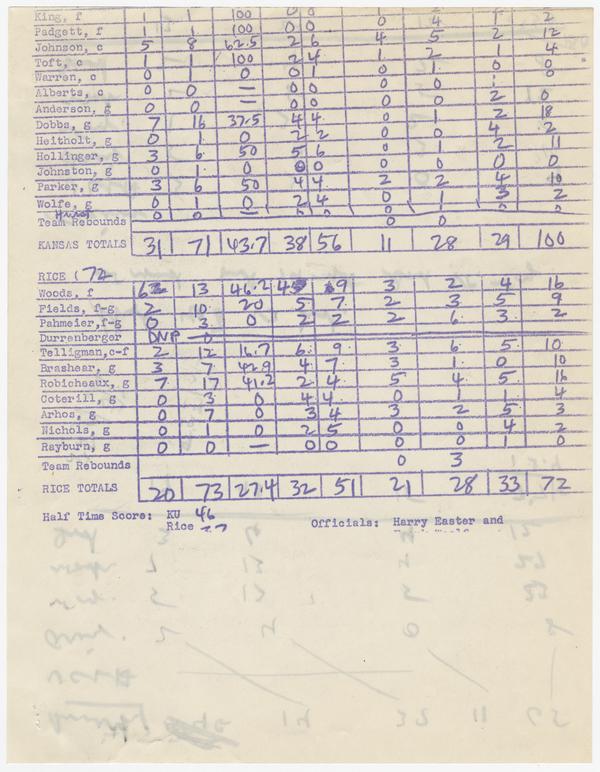 King, f 1 1 100 0 0 0 4 1 2
Padgett, f 1 1 100 0 0 4 5 2 12
Johnson, c 5 8 62.5 2 6 4 2 1 4
Toft, c 1 1 100 2 4 1 1 0 0
Warren, c 0 1 0 0 1 0 0 0
Alberts, c 0 0 — 0 0 0 0 1
Anderson, g 0 0 — 0 0 0 0 2 0
Dobbs, g 7 16 37.5 4 4 0 1 2 18
Heitholt, g 0 1 0 2 2 0 0 4 2
Hollinger, g 3 6 50 5 6 0 1 2 11
Johnston, g 0 1 0 0 0 0 0 0 0
Parker, g 3 6 50 4 4 2 2 4 10
Wolfe, g 0 1 0 2 4 0 1 3 2
0 0 — 0 0 0 1 0 0
Team Rebounds 0 0
KANSAS TOTALS 31 71 43.7 38 56 11 28 29 100
RICE (72
Woods, f 6 13 46.2 4 9 3 2 4 16
Fields, f-g 2 10 20 5 7 2 3 5 9
Pahmeier, f-g 0 3 0 2 2 2 6 3 2
Durrenberger DNP — 0
Telligman, c-f 2 12 16.7 6 9 3 6 5 10
Brashear, g 3 7 42.9 4 7 3 1 0 10
Robicheaux, g 7 17 41.2 2 4 5 4 5 16
Coterill, g 0 3 0 4 4 0 1 1 4
Arhos, g 0 7 0 3 4 3 2 5 3
Nichols, g 0 1 0 2 5 0 0 4 2
Rayburn, g 0 0 — 0 0 0 0 1 0
Team Rebounds 0 3
RICE TOTALS 20 73 27.4 32 51 21 28 33 72
Half Time Score: KU 46 Officials: Harry Easter and
Rice